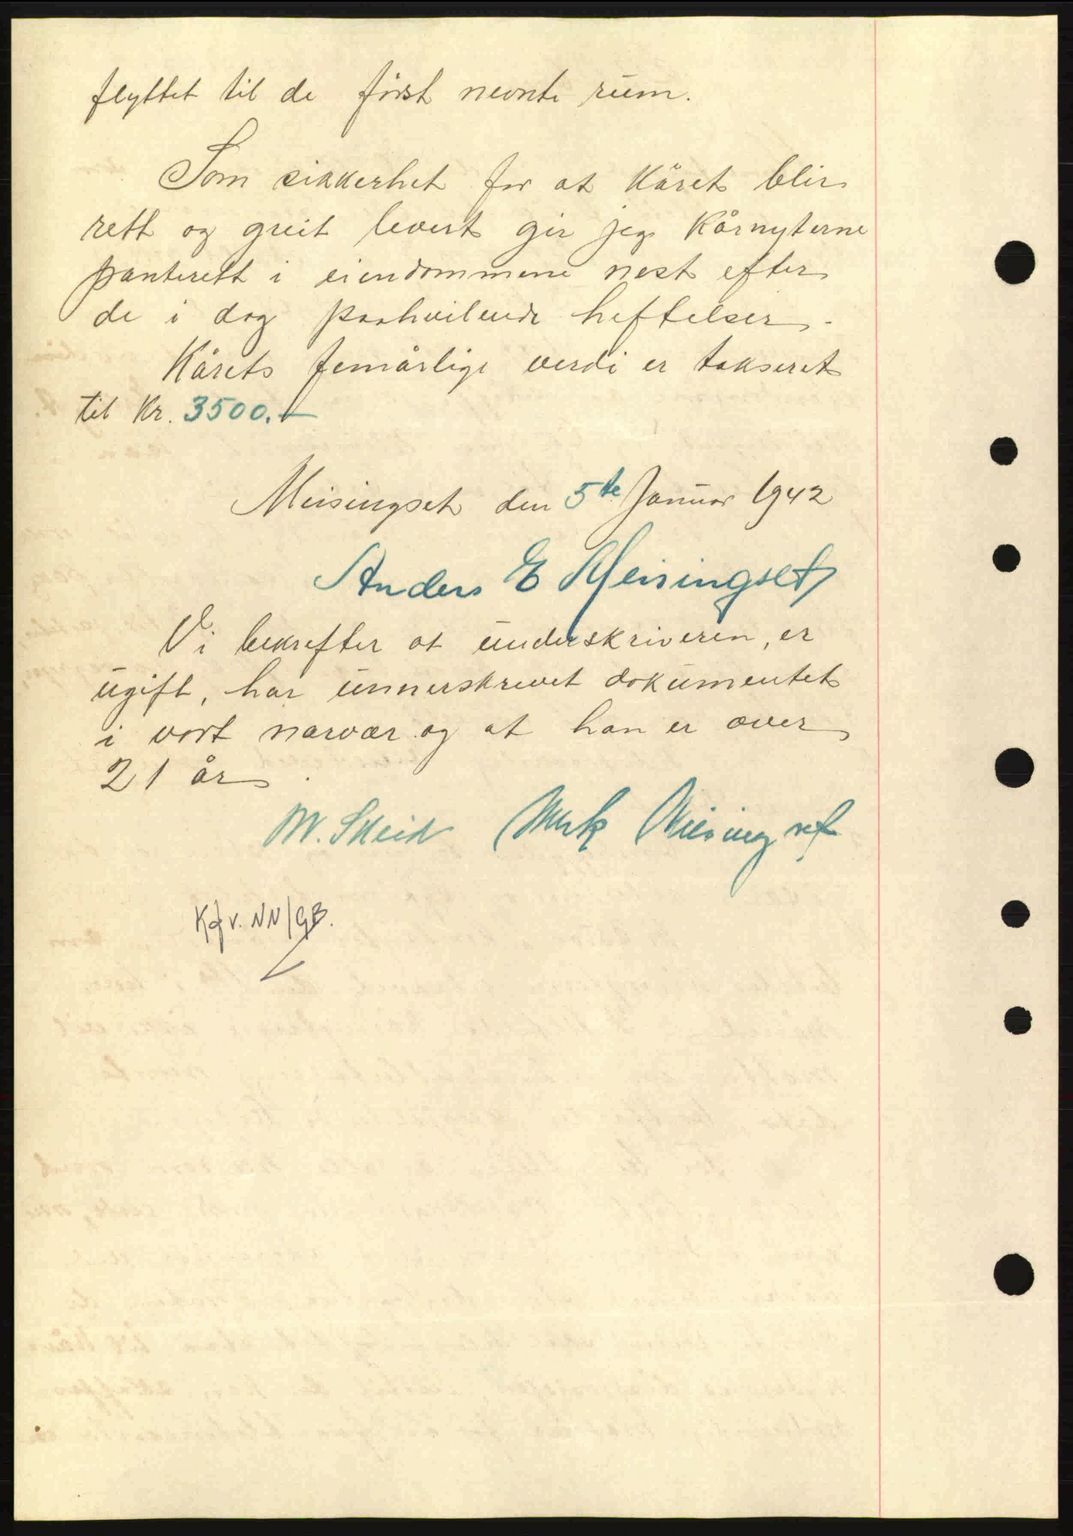 flyttet til de først nevnte rum.
Som sikkerhet for at Kåret blir
rett og greit levert gir jeg Kårnyterne
panterett i eiendommene nest efter
de i dag paahvilende heftelser.
Kårets femårlige verdi er takseret
til Kr. 3500.—
Meisingset den 5te Januar 1942
Anders E Meisingset
Vi bekrefter at underskriveren, er
ugift, har unnerskrevet dokumentet
i vort nærvær og at han er over
21 år
M. Skeid Meisingset
K/v. NN/GB.